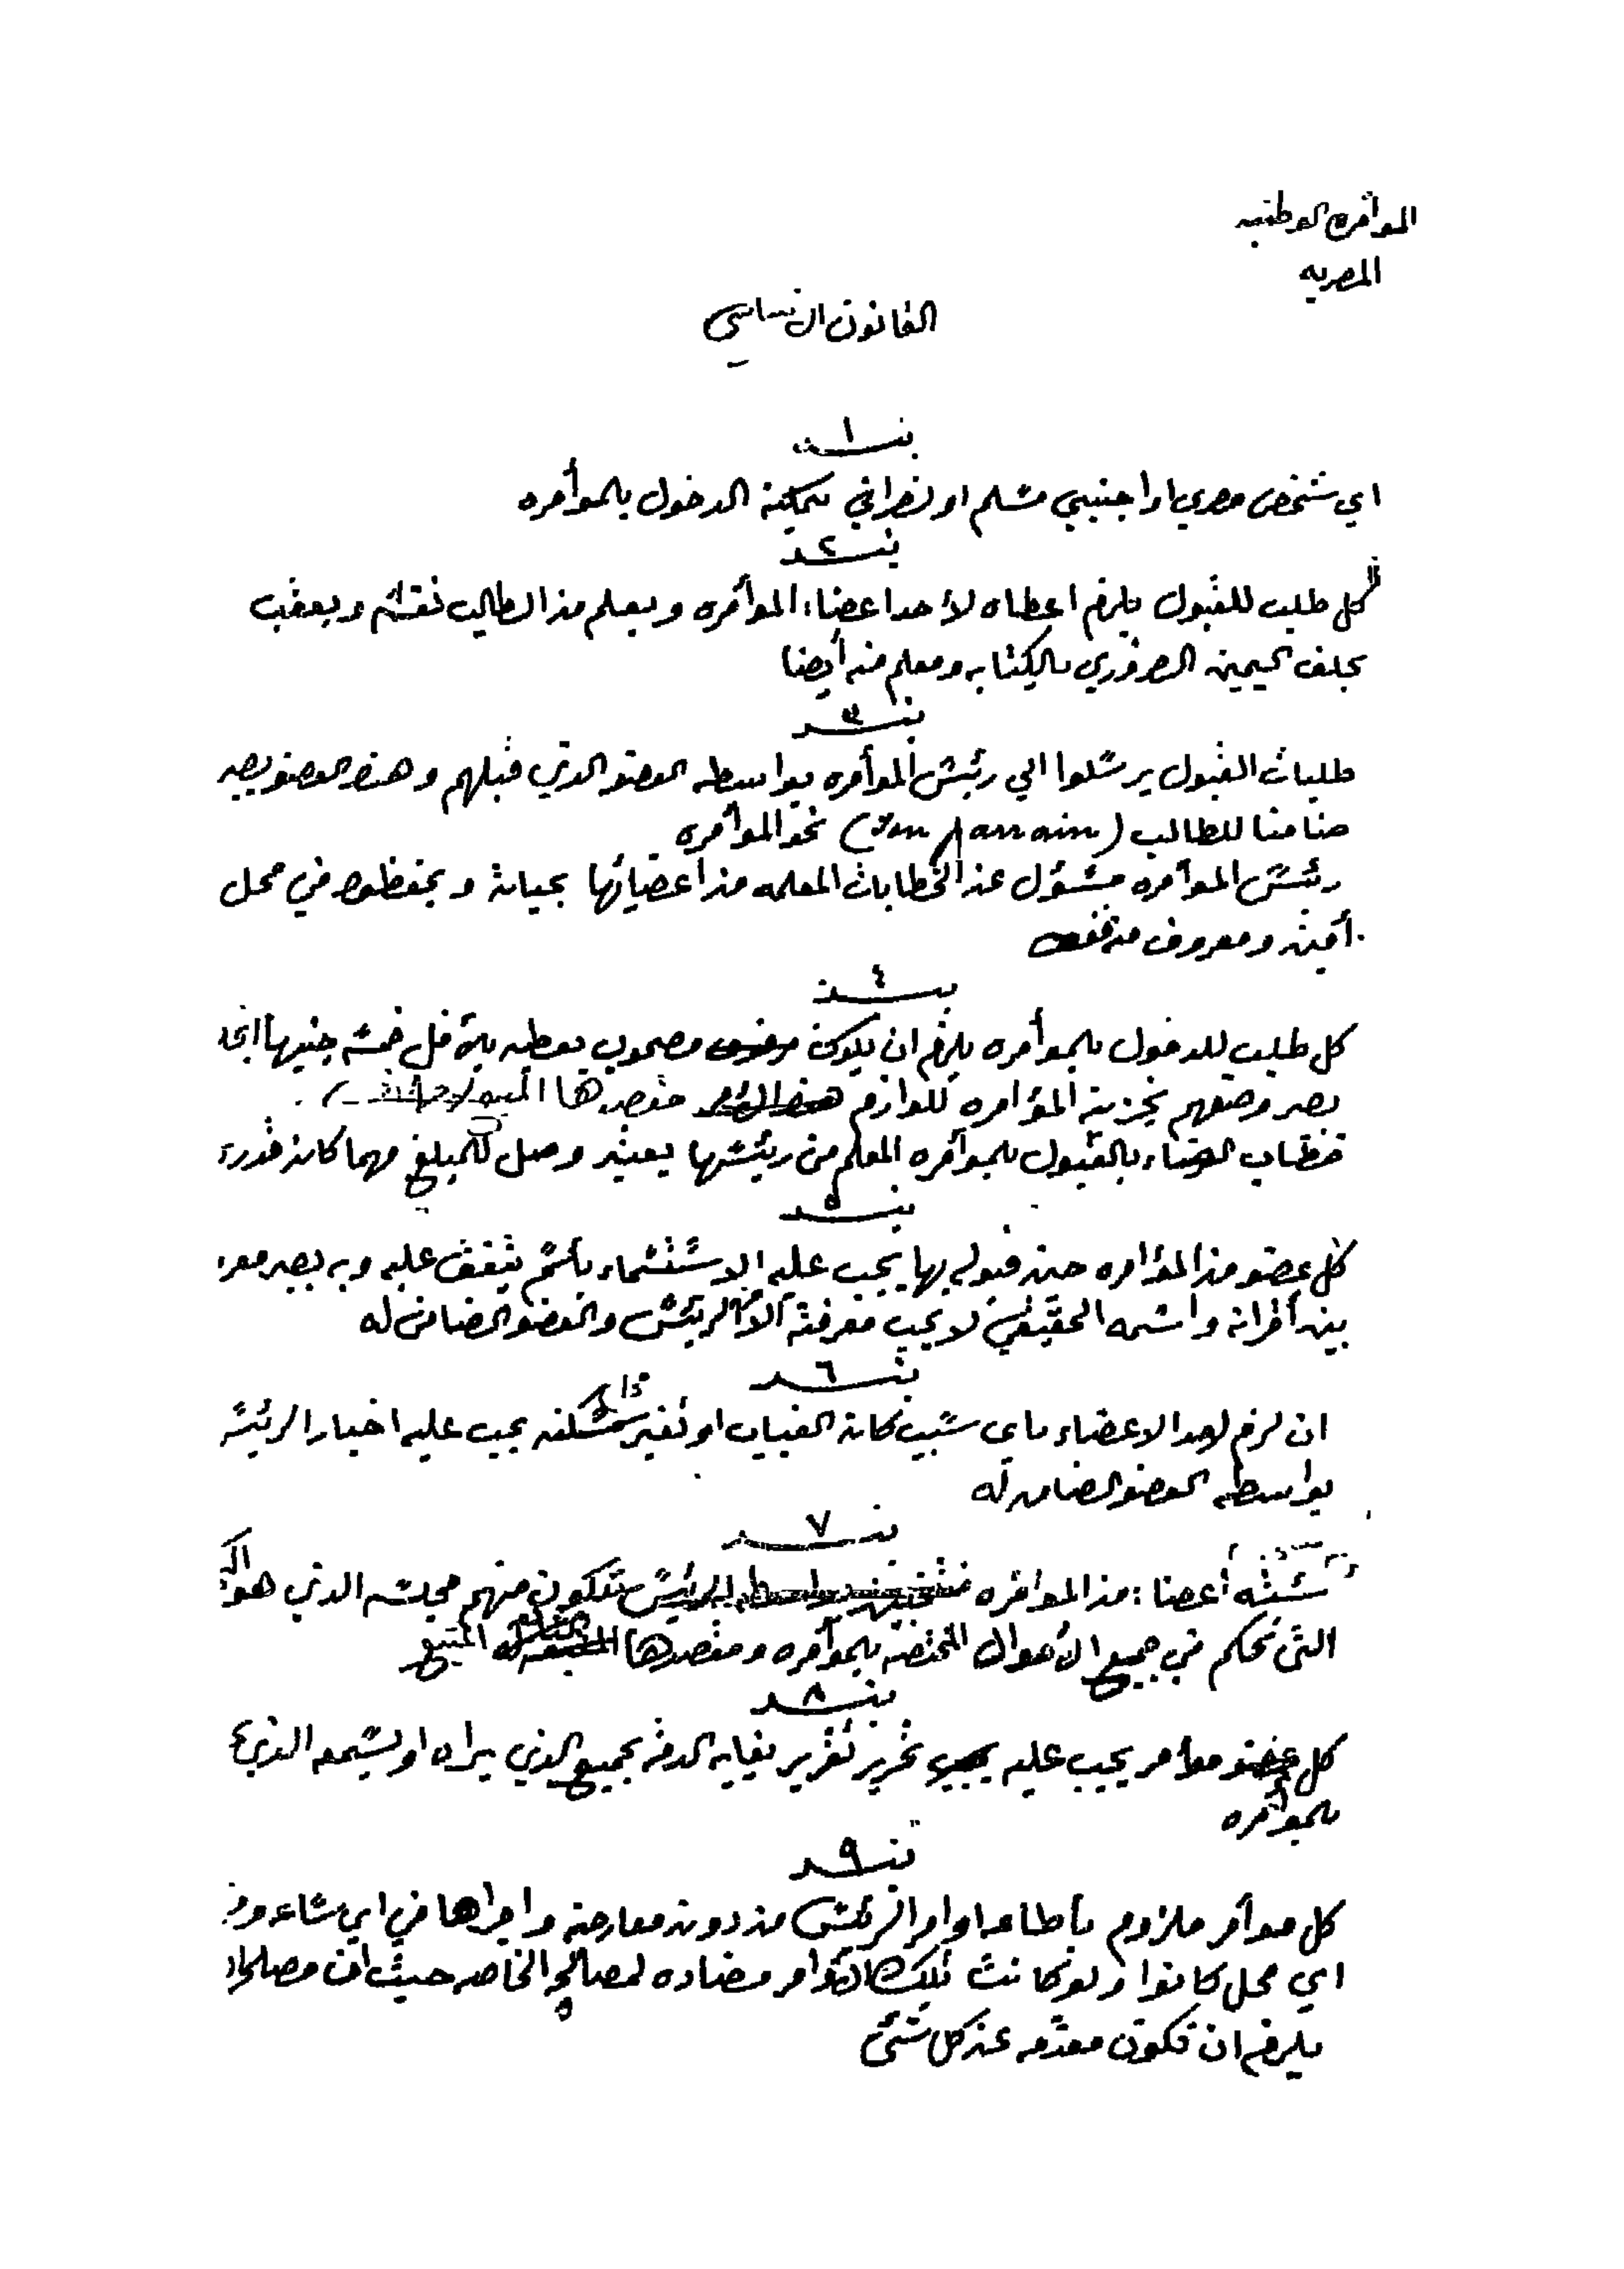 الموأمره الوطنيه
المصريه
القانون الاساسي
بند ١
اي شخص مصري او اجنبي مسلم او نصراني يمكنه الدخول بالموأمره
بند ٢
كل طلب للقبول يلزم اعطاه لأحد اعضاء الموأمره ويعلم من الطالب نفسه ويعقب
بحلف اليمين الضروري بالكتابه ومعلم منه أيضا
بند ٣
طلبات القبول يرسلوا الي رئيس الموأمره بواسطه العضو الذي قبلهم وهذا العضو يصير
ضامنا للطالب (Son parrain) نحو الموأمره
رئيس الموأمره مسؤل عن الخطابات المعلمه من اعضائها بحياته ويحفظهم في محل
أمين ومعروف منه فقط
بند ٤
كل طلب للدخول بالموأمره يلزم ان يكون مصحوب بعطيه بالاقل خمسه جنيهات
يصير وضعهم بخزينة المؤامره للوازم مقصدها
خطاب الرضاء بالقبول بالموأمره المعلم من رئيسها يعتبر وصل للمبلغ مهما كان قدره
بند ٥
كل عضو من المؤامره حين قبوله بها يجب عليه الاستسماء باسم يتفق عليه وبه يصير معر
بين أقرانه واسمه الحقيقي لا يجب معرفته الا من الرئيس والعضو الضامن له
بند ٦
ان لزم لاحد الاعضاء باي سبب كان الغياب او تغير سكنه يجب عليه اخبار الرئيس
بواسطه العضو الضامن له
بند ٧
ستة أعضاء من الموامره منتخبين بواسطه الرئيس تتكون منهم مجلسه الذي هو
التي تحكم في جميع الأحوال المختصه بالموأمره ومقصدها المتبع
بند ٨
كل عضو موأمر يجب عليه تحرير تقرير بغايه الدقه بجميع الذي يراه او يسمعه الذي
بالموأمره
بند ٩
كل موأمر ملزوم بأطاعه اوامر الرئيس من دون معارضه واجراها في اي ساعه و
اي محل كانوا ولو كانت تلك الأوامر مضاده لمصالحه الخاصه حيث ان
يلزم ان تكون مقدمه عن كل شئ